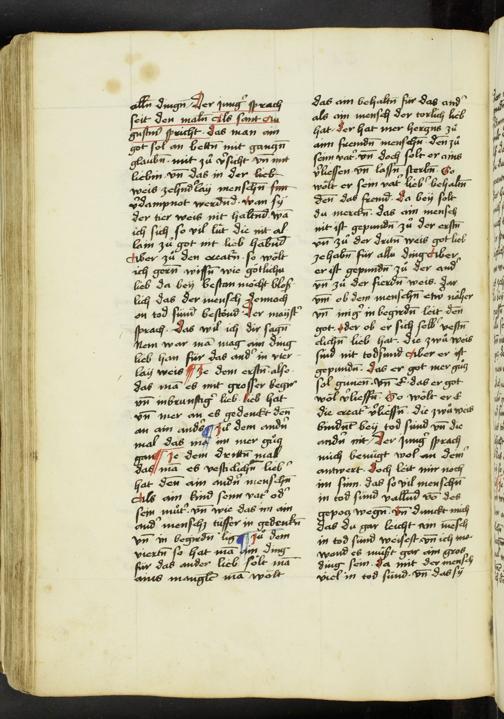 alln dingn Der jung sprach
seit den maln Als sant Au
gustin spricht das man ain
got sol an bettn mit gangn
glaubn mit zuͦ vͤsicht vn mit
liebin vn das in der lieb
weis zehnlay menschn sin
vͤdampnot werdnd wan sy
der tier weis nit haltnd wa
ich sich so vil lut die nit al
lain zuͦ got nit lieb habnd
Aber zuͦ den creatrn so wolt
ich gern wissn wie gotlichu
lieb da bey bestan moͤcht bloß
lich das der mensch dennoch
on tod suͤnd bestoͤnd Der mayst
sprach Das wil ich dir sagn
Nem war ma mag ain ding
lieb han fuͤr das and in vier
lay weis Ze dem erstn also
das ma es mit grosser begir
vn inbrunstig lieb lieb hat
vn mer an es gedenkt den
an ain ands Zuͦ dem andn
mal das ma im mer guͤtz
gan Ze dem drittn mal
das ma es vestclichn lieb
hat den ain andn menschn
Als ain kind sein vat od
sein muͦt vn wie das im ain
and mensch tieffer in gedenkn
vn in begirdn lig Zuͦ dem
viertn so hat ma ain ding
fuͤr das ander lieb solt ma
ains manglen ma woͤlt
das ain behaltn fuͤr das and
als ain mensch der torlich lieb
hat der hat mer hertzns zuͦ
ainn fremdn menschn den zuͦ
seim vat vn doch solt er ains
vͤliessn vn lassn sterbn So
woͤlt er sein vat lieb behaltn
den das fremd Da bey solt
du merckn das ain mensch
nit ist gepundn zuͦ der erstn
vn zuͦ der dritn weis got lieb
ze habn fuͤr alle ding Aber
er ist gepundn zuͦ der and
vn zuͦ der vierdn weis dar
vm ob den menschn etw naͤher
vn inig in begirdn leit den
got oder ob er sich selb vestn
clichn lieb hat die zwu weis
sind nit todsund Aber er ist
gepundn das er got mer guͤtz
sol gunen vn das er got
woͤl vͤliessn So woͤlt er
die creat vͤliessn die zwu weis
bindnt bey tod sund vn die
andn nit Der jung sprach
mich benuͤgt wol an dem
antwert Doch leit mir noch
im sinn das so vil menschn
in tod sund vallnd vo des
gepotz wegn Vn dunckt mich
das du gar leicht ain mesch
in tod sund weisest vn ich me
wond es muͤst gar ain gros
ding sein Da mit der mensch
viel in tod sund vn das sy